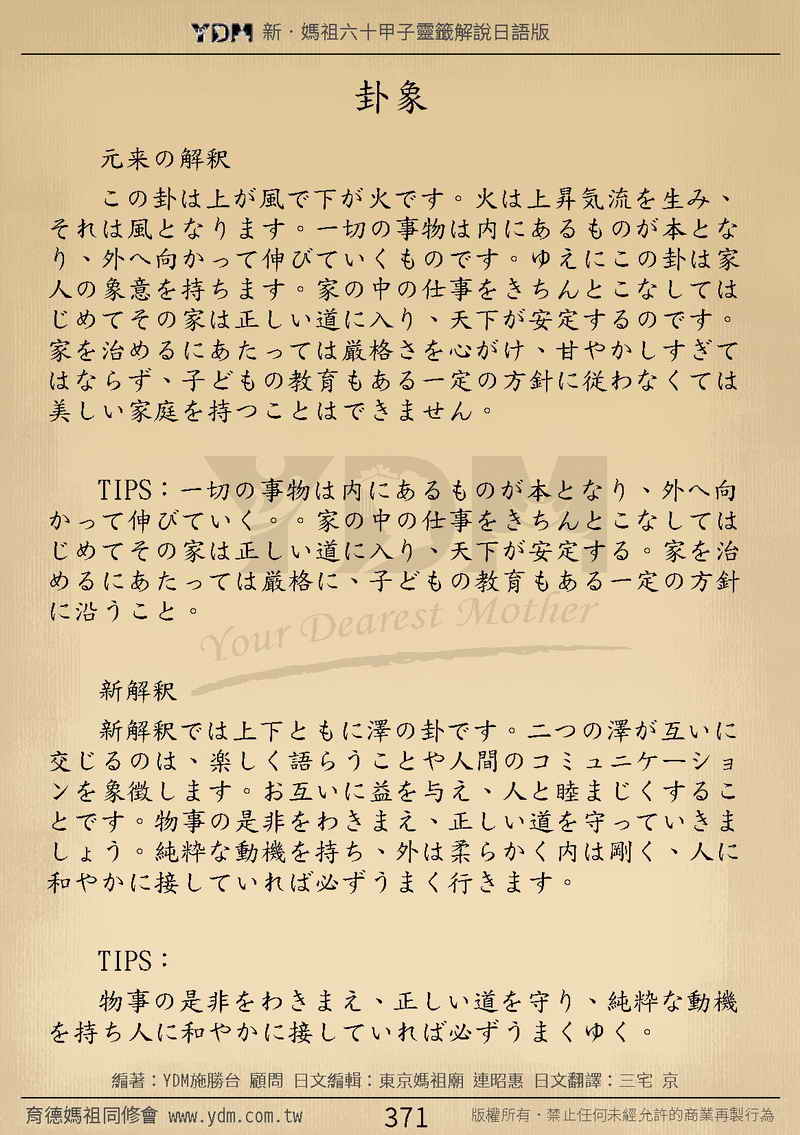 YDM 新・媽祖六十甲子靈籤解說日語版
卦象
元来の解釈
この卦は上が風で下が火です。火は上昇気流を生み、
それは風となります。一切の事物は内にあるものが本とな
り、外へ向かって伸びていくものです。ゆえにこの卦は家
人の象意を持ちます。家の中の仕事をきちんとこなしては
じめてその家は正しい道に入り、天下が安定するのです。
家を治めるにあたっては厳格さを心がけ、甘やかしすぎて
はならず、子どもの教育もある一定の方針に従わなくては
美しい家庭を持つことはできません。
YDM
TIPS：一切の事物は内にあるものが本となり、外へ向
かって伸びていく。。家の中の仕事をきちんとこなしては
じめてその家は正しい道に入り、天下が安定する。家を治
めるにあたっては厳格に、子どもの教育もある一定の方針
に沿うこと。
Your Dearest Mother
新解釈
新解釈では上下ともに澤の卦です。二つの澤が互いに
交じるのは、楽しく語らうことや人間のコミュニケーショ
ンを象徴します。お互いに益を与え、人と睦まじくするこ
とです。物事の是非をわきまえ、正しい道を守っていきま
しょう。純粋な動機を持ち、外は柔らかく内は剛く、人に
和やかに接していれば必ずうまく行きます。
TIPS：
物事の是非をわきまえ、正しい道を守り、純粋な動機
を持ち人に和やかに接していれば必ずうまくゆく。
編著：YDM施勝台 顧問 日文編輯：東京媽祖廟 連昭惠 日文翻譯：三宅 京
育德媽祖同修會 www.ydm.com.tw 371 版權所有・禁止任何未經允許的商業再製行為